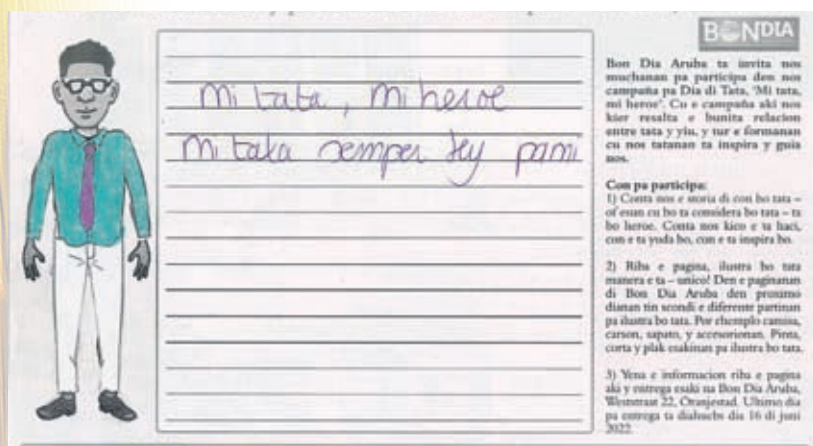 mi tata, mi heroe
mi tata semper tey pami
BONDIA
Bon Dia Aruba ta invita nos
muchanan pa participa den nos
campaña pa Dia di Tata, 'Mi tata,
mi heroe'. Cu e campaña aki nos
kier resalta e bunita relacion
entre tata y yiu, y tur e formanan
cu nos tatanan ta inspira y guia
nos.
Con pa participa:
1) Conta nos e storia di con bo tata –
of esun cu bo ta considera bo tata – ta
bo heroe. Conta nos kico e ta haci,
con e ta yuda bo, con e ta inspira bo.
2) Riba e pagina, ilustra bo tata
manera e ta – unico! Den e paginanan
di Bon Dia Aruba den proximo
dianan tin scondi e diferente partinan
pa ilustra bo tata. Por ehemplo camisa,
carson, sapato, y accesorionan. Pinta,
corta y plak esakinan pa ilustra bo tata.
3) Yena e informacion riba e pagina
aki y entrega esaki na Bon Dia Aruba,
Weststraat 22, Oranjestad. Ultimo dia
pa entrega ta diahuebs dia 16 di juni
2022.